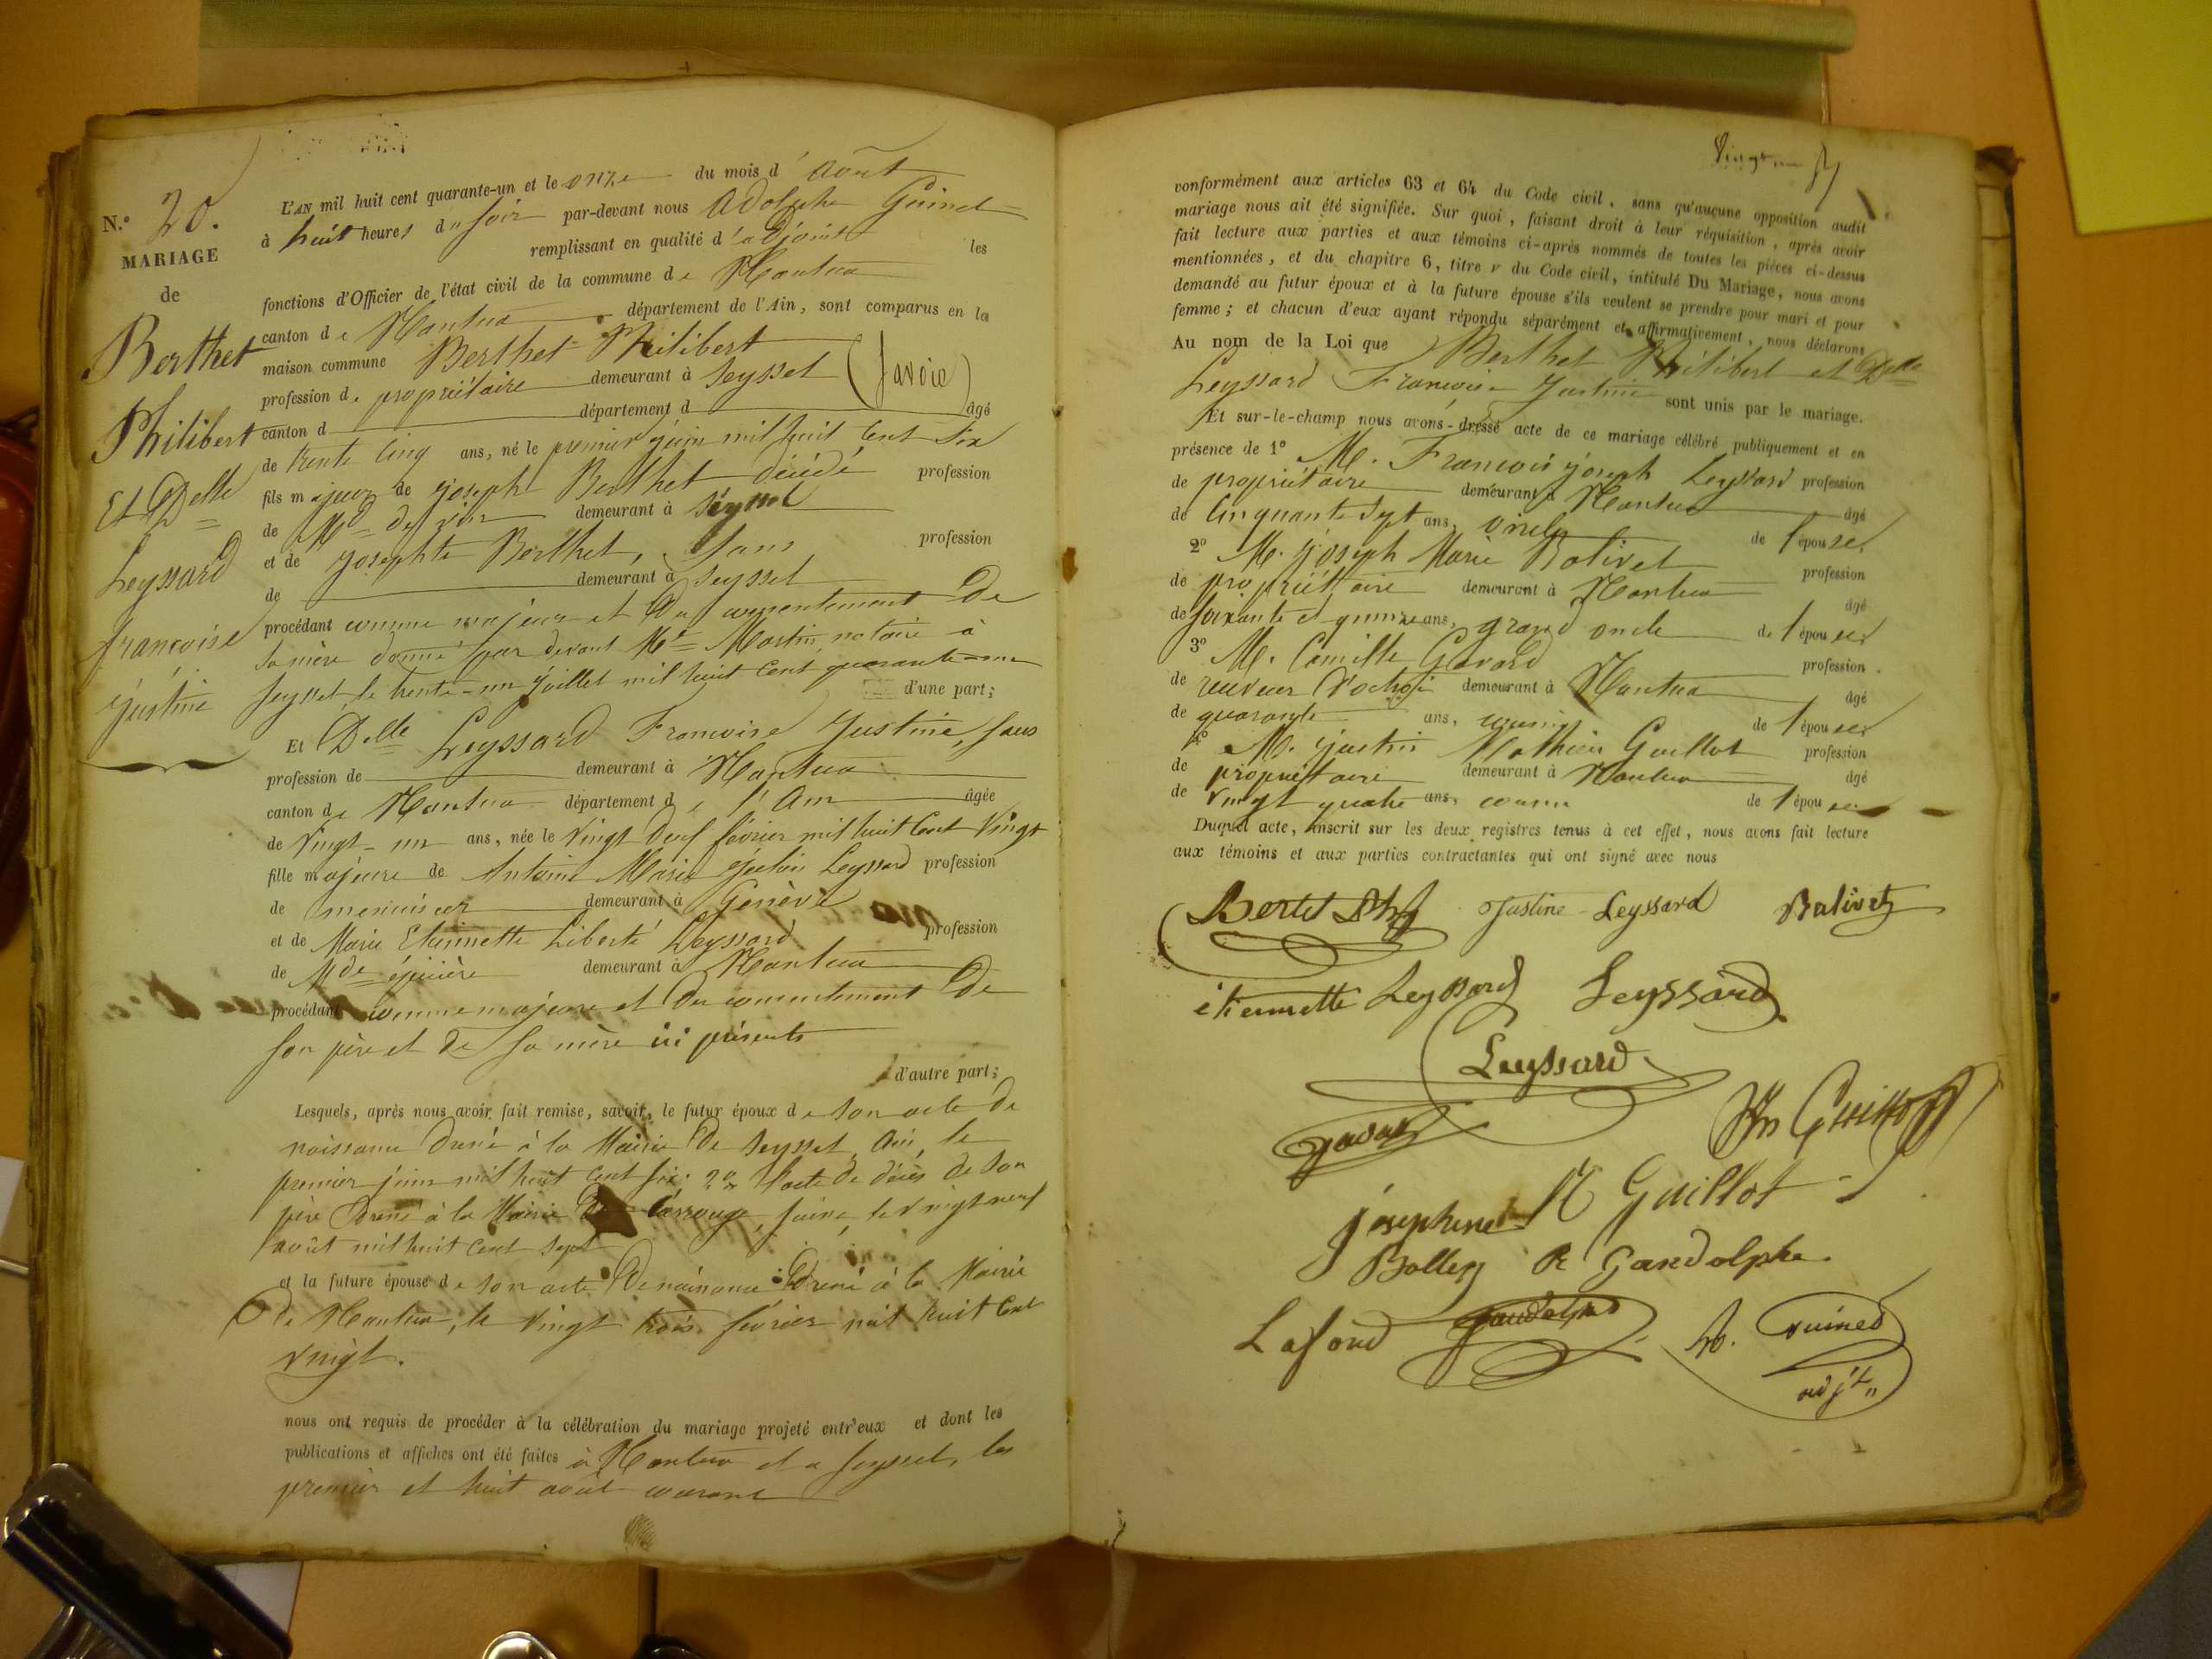 N.° 20.
MARIAGE
de
Berthet
Philibert
Et Delle
Leyssard
françoise
justine
L'AN mil huit cent quarante-un et le onze du mois d'août
à huit heures du soir par-devant nous Adolphe Guinet
remplissant en qualité d'adjoint les
fonctions d'Officier de l'état civil de la commune de Nantua
canton de Nantua département de l'Ain, sont comparus en la
maison commune Berthet Philibert
profession de propriétaire demeurant à Seyssel (Savoie)
canton d département d âgé
de trente cinq ans, né le premier juin mil huit cent six
fils majeur de joseph Berthet décédé profession
de Md demeurant à Seyssel
et de josephte Berthet, Sans profession
de demeurant à Seyssel
procédant comme majeur et du consentement de
sa mère donné par devant Me Martin, notaire à
Seyssel, le trente-un juillet mil huit cent quarante-un
d'une part;
Et Delle Leyssard Francoise Justine, sans
profession de demeurant à Nantua
canton de Nantua département de l'Ain âgée
de vingt-un ans, née le vingt deux février mil huit cent vingt
fille majeure de Antoine Marie Leyssard profession
de menuisier demeurant à Genève
et de Marie Etiennette Liberté Leyssard profession
de Mde épicière demeurant à Nantua
procédant comme majeure et du consentement de
son père et de sa mère ici présents
d'autre part;
Lesquels, après nous avoir fait remise, savoir, le futur époux de son acte de
naissance dressé à la Mairie de Seyssel, Ain, le
premier juin mil huit cent six; 2° l'acte de décès de son
père dressé à la Mairie de Carrouge, le vingt neuf
août mil huit cent sept
et la future épouse de son acte de naissance dressé à la Mairie
de Nantua, le vingt trois février mil huit cent
vingt.
nous ont requis de procéder à la célébration du mariage projeté entr'eux et dont les
publications et affiches ont été faites à Nantua et à Seyssel, les
premier et huit août courant
conformément aux articles 63 et 64 du Code civil, sans qu'aucune opposition audit
mariage nous ait été signifiée. Sur quoi, faisant droit à leur réquisition, après avoir
fait lecture aux parties et aux témoins ci-après nommés de toutes les pièces ci-dessus
mentionnées, et du chapitre 6, titre v du Code civil, intitulé Du Mariage, nous avons
demandé au futur époux et à la future épouse s'ils veulent se prendre pour mari et pour
femme; et chacun d'eux ayant répondu séparément et affirmativement, nous déclarons
Au nom de la Loi que Berthet Philibert et Delle
Leyssard Françoise Justine sont unis par le mariage.
Et sur-le-champ nous avons dressé acte de ce mariage célébré publiquement et en
présence de 1° M. François joseph Leyssard profession
de propriétaire demeurant à Nantua âgé
de Cinquante Sept ans, oncle de l'épouse,
2° M. joseph Marie Balivet profession
de propriétaire demeurant à Nantua âgé
de soixante et quinze ans, grand oncle de l'épouse
3° M. Camille Gavard profession
de receveur d'octroi demeurant à Nantua âgé
de quarante ans, cousin de l'épouse
4° M. justin Mathieu Guillot profession
de propriétaire demeurant à Nantua âgé
de vingt quatre ans, cousin de l'épouse
Duquel acte, inscrit sur les deux registres tenus à cet effet, nous avons fait lecture
aux témoins et aux parties contractantes qui ont signé avec nous
Bertet Justine Leyssard Balivet
étiennette Leyssard Leyssard
Leyssard
gavard Guillot
joséphine Guillot
Bolley R Gandolphe.
Lafond gandolphe Ad. Guinet
adjt